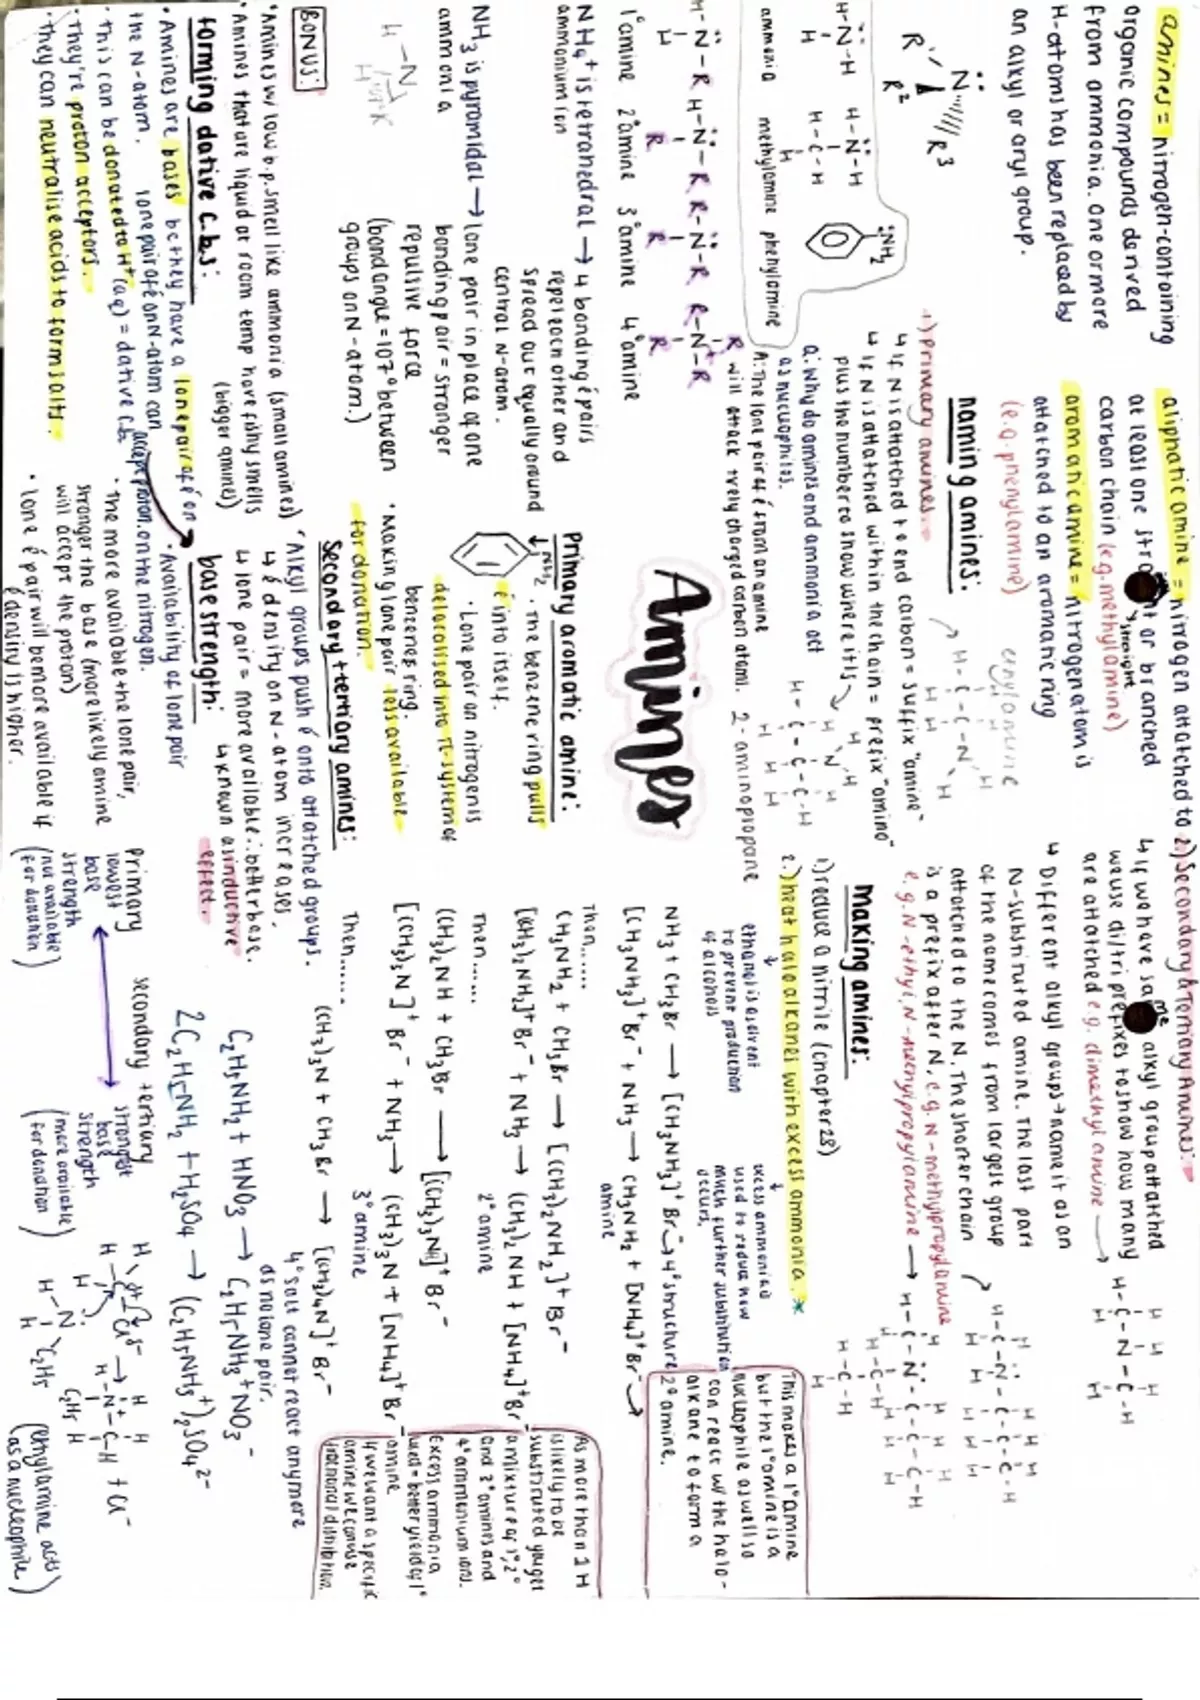 amines = nitrogen-containing
organic compounds derived
from ammonia. one or more
H-atoms has been replaced by
an alkyl or aryl group.
N
R' R² R³
H-N-H
H
H-N-H
H-C-H
H
:NH₂
ammonia methylamine phenylamine
H-N-R H-N-R R-N-R R-N⁺-R
H R R R R
1°amine 2°amine 3°amine 4°amine
NH₄⁺ is tetrahedral → 4 bonding é pairs
ammonium ion
repel each other and
spread out equally around
central N-atom.
NH₃ is pyramidal → lone pair in place of one
ammonia
bonding pair = stronger
repulsive force
(bond angle = 107° between
groups on N-atom.)
BONUS:
•Amines w/ low b.p. smell like ammonia (small amines)
•Amines that are liquid at room temp have fishy smells
(bigger amines)
forming dative c.b.s:
• Amines are bases bc they have a lone pair of é on
the N-atom. lone pair of é on N-atom can accept proton.
• this can be donated to H⁺(aq) = dative c.b. on the nitrogen.
• they're proton acceptors.
• they can neutralise acids to form salts.
aliphatic amine = nitrogen attatched to
at least one straight or branched
carbon chain (e.g. methylamine)
aromatic amine = nitrogen atom is
attatched to an aromatic ring
(e.g. phenylamine)
naming amines:
ethylamine
1) primary amines.
↳ if N is attatched to end carbon = suffix "amine"
↳ if N is attatched within the chain = prefix "amino"
plus the number to show where it is
Q: Why do amines and ammonia act
as nucleophiles.
A: The lone pair of é from an amine
will attack +vely charged carbon atoms.
2-aminopropane
Amines
Primary aromatic amine:
NH₂
• The benzene ring pulls
é into itself.
• Lone pair on nitrogen is
delocalised into π-system of
benzenes ring.
• Making lone pair less available
for donation.
Secondary + tertiary amines:
• Alkyl groups push é onto attatched groups.
↳ é density on N-atom increases.
↳ lone pair = more available ∴ better base.
↳ known as inductive
effect.
base strength:
• Availability of lone pair
• The more available the lone pair,
stronger the base (more likely amine
will accept the proton)
• lone é pair will be more available if
é density is higher.
2.) Secondary & Tertiary Amines:
↳ If we have same alkyl group attatched
we use di/tri prefixes to show how many
are attatched e.g. dimethylamine
↳ Different alkyl groups → name it as an
N-substituted amine. The last part
of the name comes from largest group
attatched to the N. The shorter chain
is a prefix after N, e.g. N-methylpropylamine
e.g. N-ethyl, N-methylpropylamine
making amines:
1) reduce a nitrile (chapter 28)
2.) heat haloalkanes with excess ammonia.*
ethanol is a solvent
to prevent production
of alcohols
excess ammonia is
used to reduce how
much further substitution
occurs.
NH₃ + CH₃Br → [CH₃NH₃]⁺Br⁻ → 4° structure
[CH₃NH₃]⁺Br⁻ + NH₃ → CH₃NH₂ + [NH₄]⁺Br⁻
amine
This makes a 1° amine
but the 1° amine is a
nucleophile as well so
can react w/ the halo-
alkane to form a
2° amine.
Then......
CH₃NH₂ + CH₃Br → [(CH₃)₂NH₂]⁺Br⁻
[(CH₃)₂NH₂]⁺Br⁻ + NH₃ → (CH₃)₂NH + [NH₄]⁺Br⁻
2° amine
Then......
(CH₃)₂NH + CH₃Br → [(CH₃)₃NH]⁺Br⁻
[(CH₃)₃N]⁺Br⁻ + NH₃ → (CH₃)₃N + [NH₄]⁺Br⁻
3° amine
Then......
(CH₃)₃N + CH₃Br → [(CH₃)₄N]⁺Br⁻
4° salt cannot react anymore
as no lone pair.
As more than 1 H
is likely to be
substituted you get
a mixture of 1°, 2°
and 3° amines and
4° ammonium ions.
Excess ammonia
used = better yield of 1°
amine.
If we want a specific
amine we can use
fractional distillation.
C₂H₅NH₂ + HNO₃ → C₂H₅NH₃⁺NO₃⁻
2C₂H₅NH₂ + H₂SO₄ → (C₂H₅NH₃⁺)₂SO₄²⁻
Primary secondary tertiary
lowest
base
strength
(not available
for donation)
strongest
base
strength
(more available
for donation)
C₂H₅
C₂H₅
+ Cl⁻
(ethylamine acts
as a nucleophile)